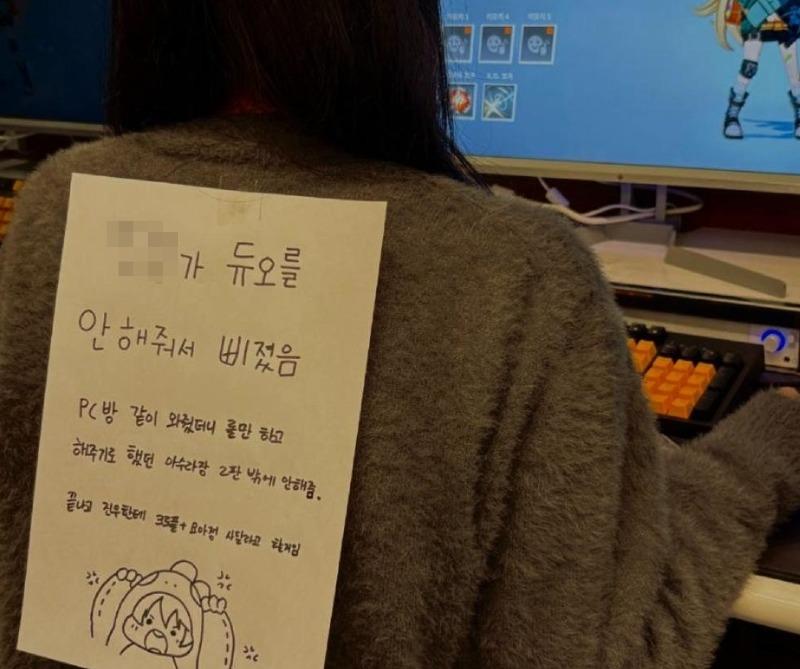 가 듀오를
안 해줘서 삐졌음
PC방 같이 와줬더니 롤만 하고
해주기로 했던 아수라장 2판 밖에 안해줌.
끝나고 진우한테 크로플+요아정 사달라고 할거임